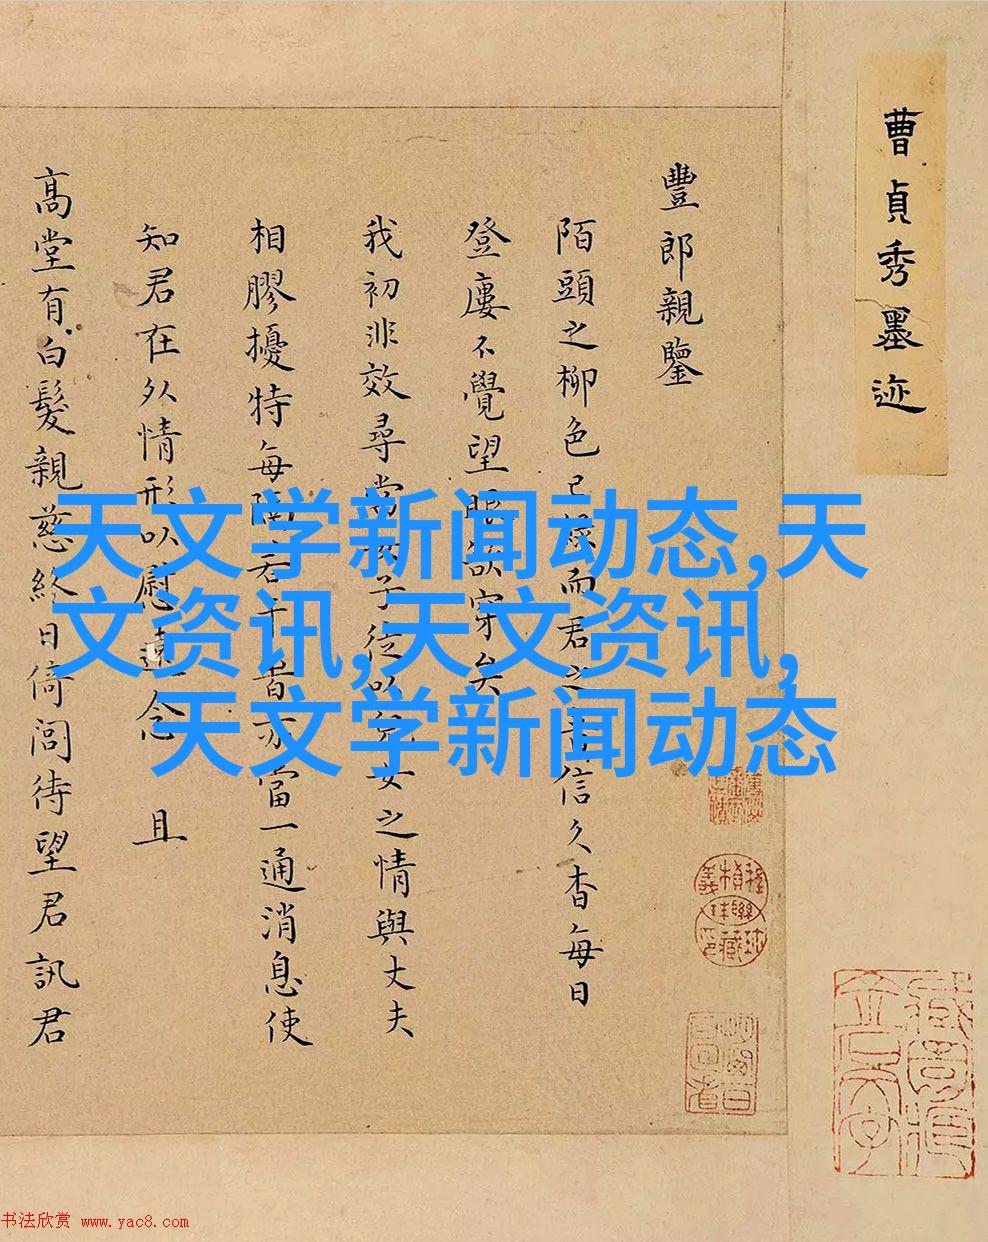 曹貞秀墨迹
豐郎親鑒
陌頭之柳色已 而君之 信久杳每日
登廔不覺望眼欲穿矣
我初非效尋常 子徒以 女之情與丈夫
相膠擾特每 君 者亦當一通消息使
知君在外情形以慰遠念 且
高堂有白髮親慈終日倚閭待望君訊君
天文学新闻动态,天
文资讯,天文资讯,
天文学新闻动态
书法欣赏 www.yac8.com